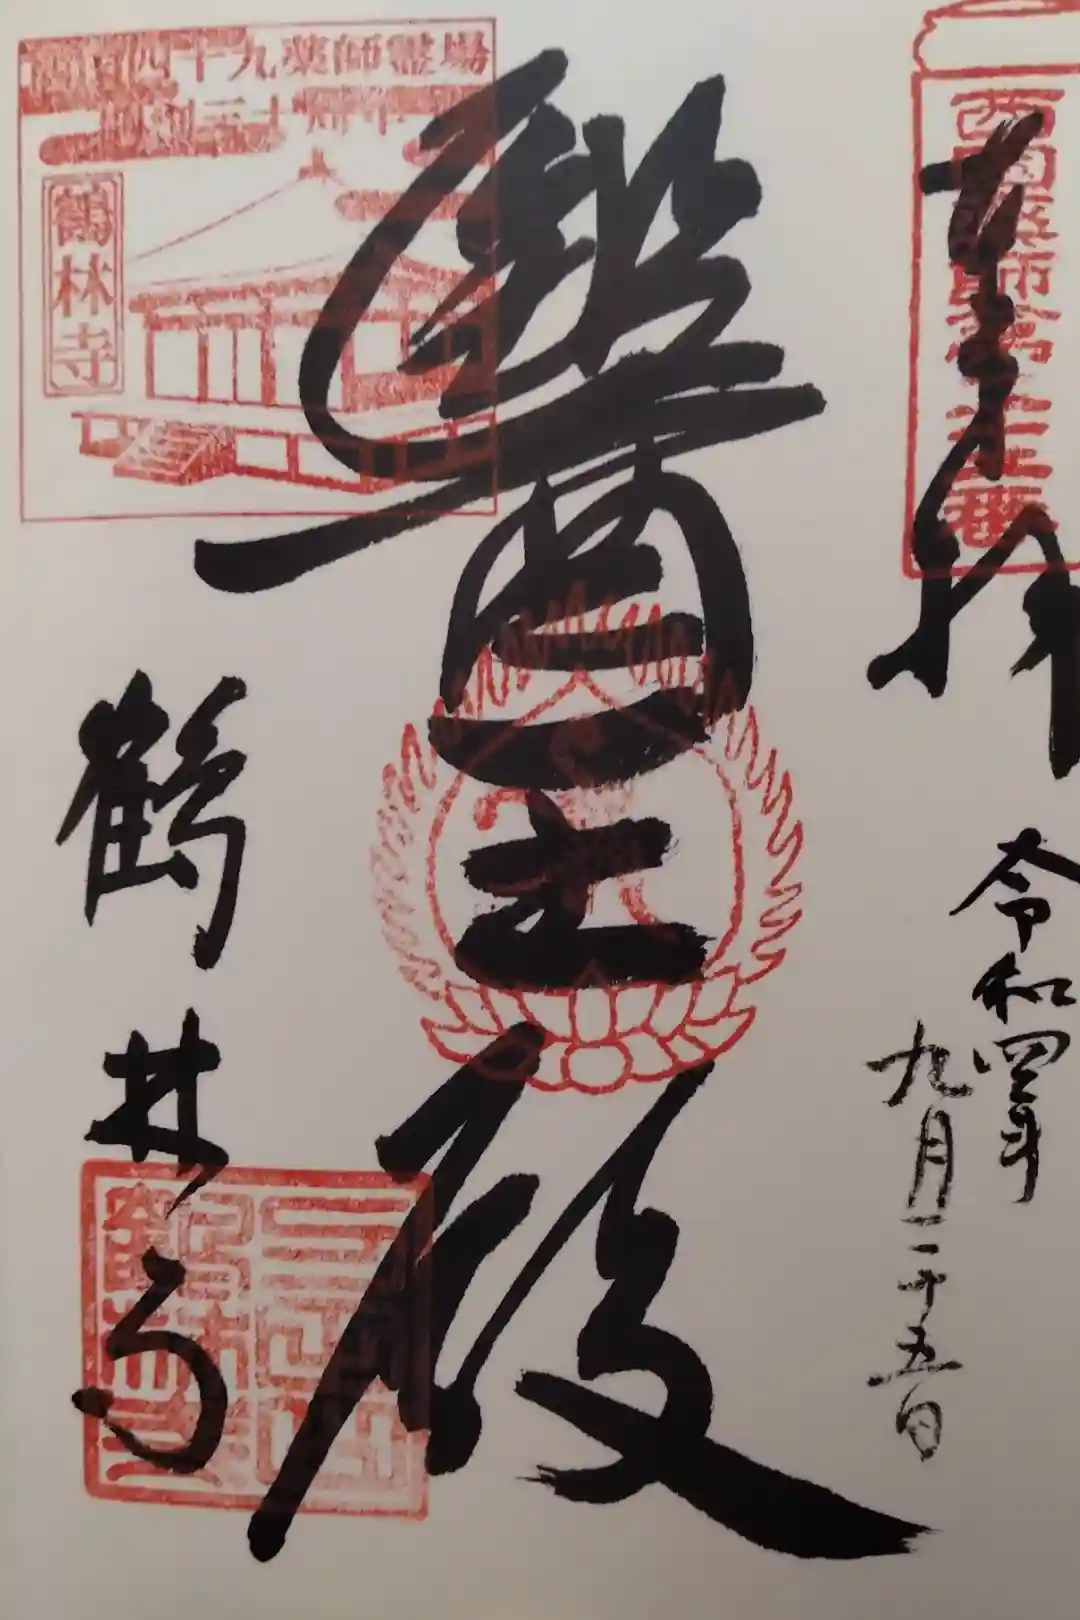 西国薬師第二十二番
奉拝
令和四年
九月二十五日
醫王殿
西国四十九薬師霊場
開創三十周年
鶴林寺
鶴林寺